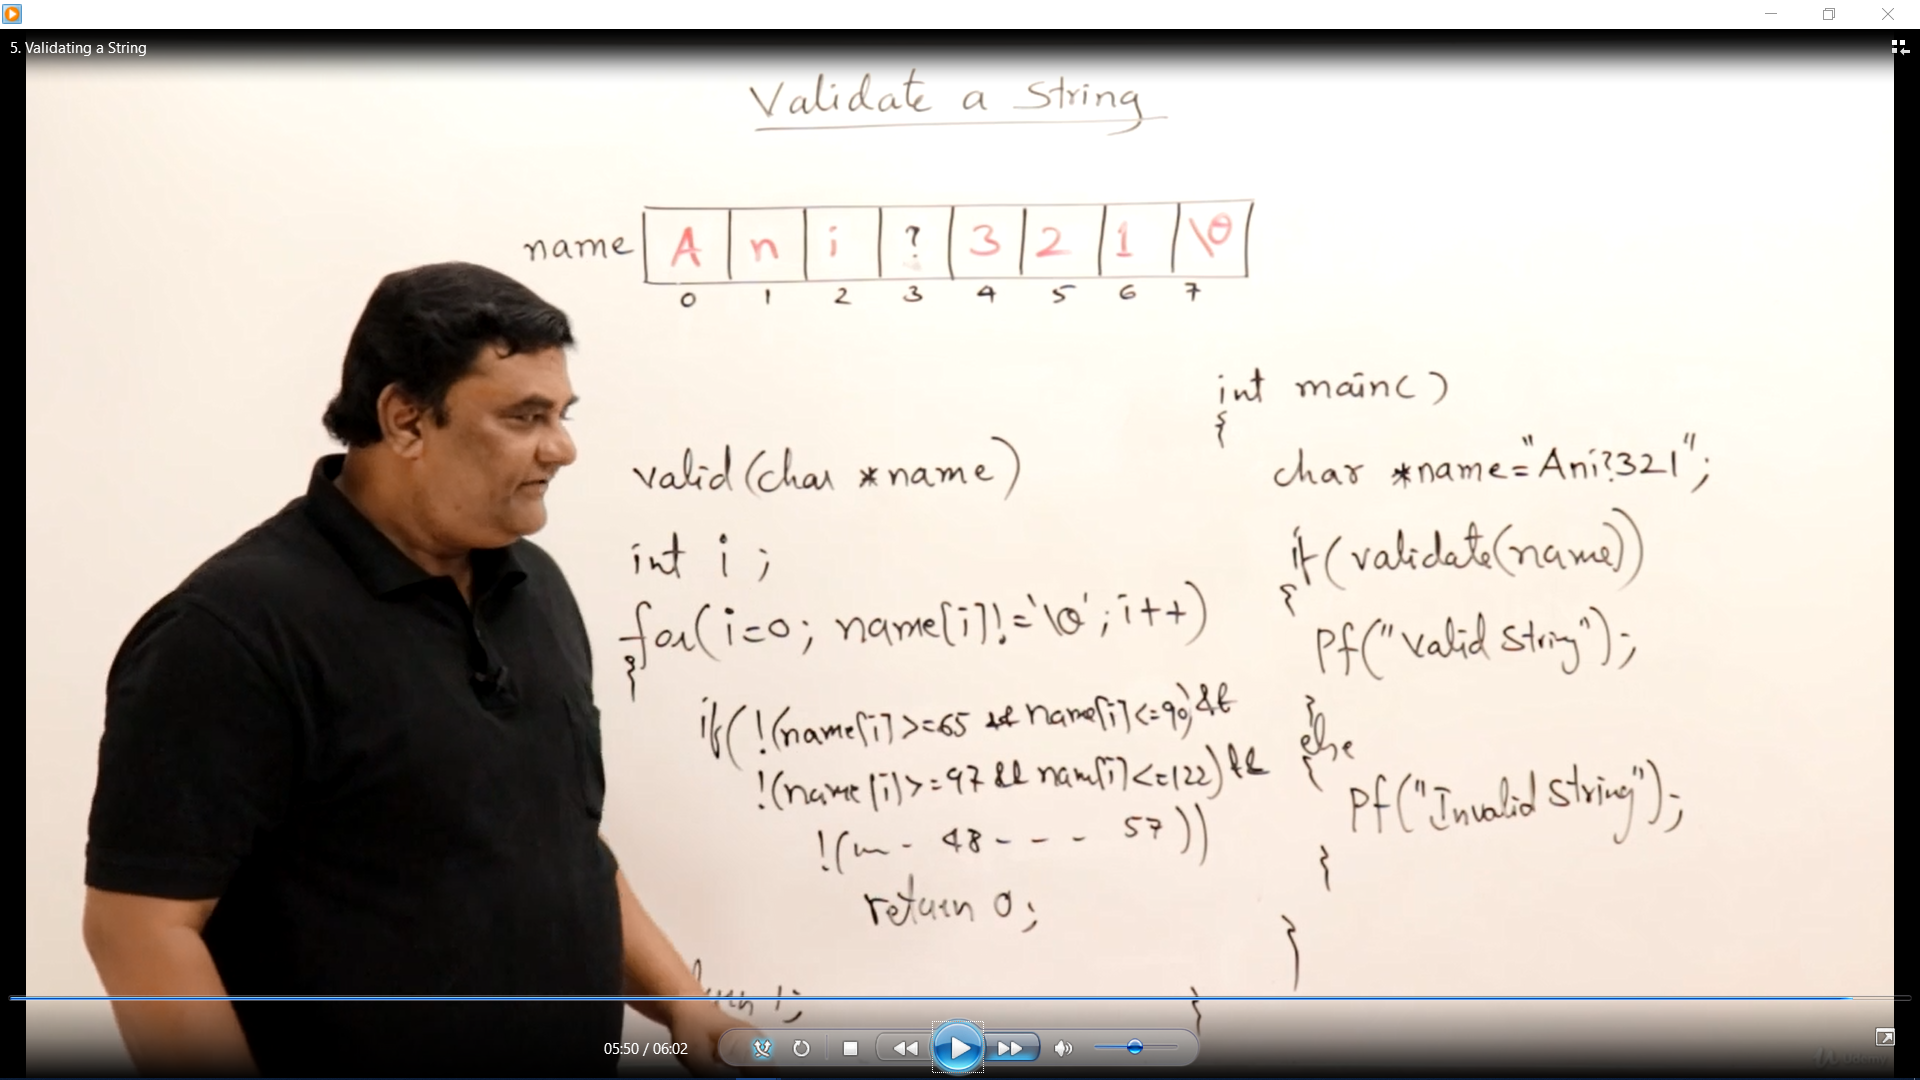 5. Validating a String
Validate a String
name A n i ? 3 2 1 \0
0 1 2 3 4 5 6 7
valid(char *name)
int i;
for(i=0; name[i]!='\0'; i++)
{
if(!(name[i]>=65 && name[i]<=90)&&
!(name[i]>=97 && nam[i]<=122)&&
!( - 48 - - - 57))
return 0;
1;
}
int main()
{
char *name="Ani?321";
if(validate(name))
{
Pf("Valid String");
}
else
{
Pf("Invalid String");
}
}
05:50 / 06:02
Udemy